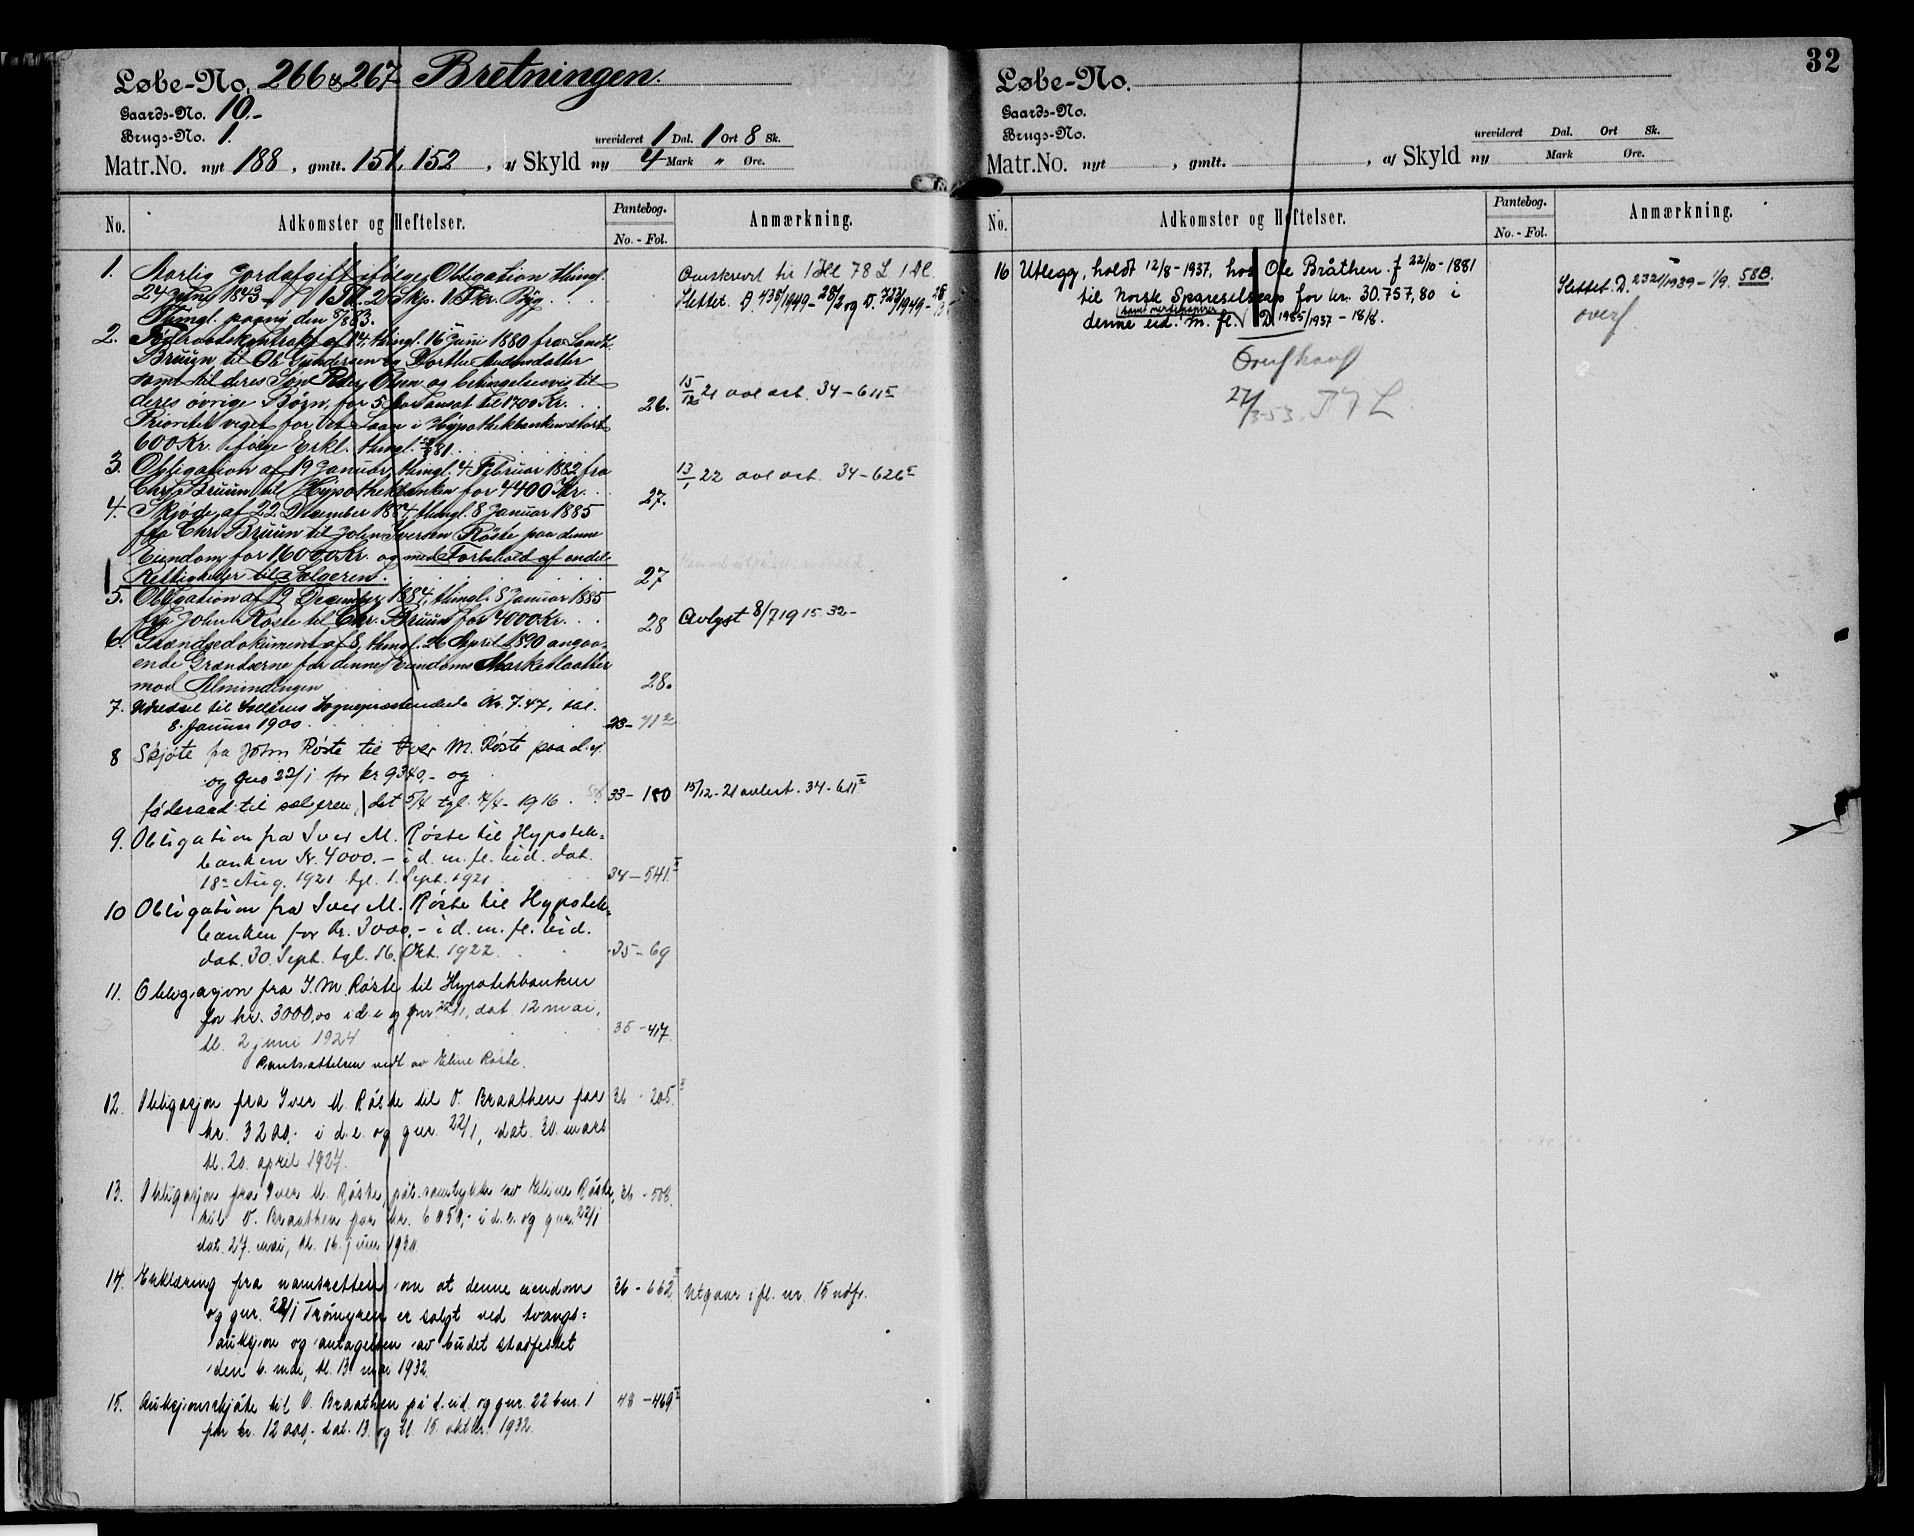 Løbe-No. 266 & 267 Bretningen.
Gaards-No. 10.-
Brugs-No. 1.
urevideret 1 Dal. 1 Ort 8 Sk.
Matr.No. nyt 188, gmlt. 151, 152, af Skyld ny 4 Mark " Øre.
No. Adkomster og Heftelser. Pantebog. No. - Fol. Anmærkning.
1. Aarlig Jordafgift ifølge Obligation thingl.
24 Juni 1843
Thingl. paany den
Omskrevet til 1 Hl 78 L
Slettet. D. 435/1949 - 28/2 og D. 723/1949
2. Føderaadskontrakt af 14, thingl. 16 Juni 1880 fra
Bruun til Ole Gundersen og Dorthe
samt til deres Søn Peder Olsen og betingelsesvis til
deres øvrige Børn, for 5 Aar Lansat til 1700 Kr. 26. 15/12 21 avl ext. 34-611
Prioritet viget for et Laan i Hypothekbanken stort
600 Kr. ifølge Erkl. thingl. 81.
3. Obligation af 19 Januar, thingl. 4 Februar 1882 fra
Chr. Bruun til Hypothekbanken for 4400 Kr. 27. 13/1 22 avl ext. 34-626
4. Skjøde af 22 December 1884, thingl. 8 Januar 1885
fra Chr. Bruun til John Iversen Røste paa denne
Eiendom for 16000 Kr. og med Forbehold af endel
Rettigheder til Sælgeren. 27
5. Obligation af 19 December 1884, thingl. 8 Januar 1885
fra John Røste til Chr. Bruun for 4000 Kr. 28 Avlyst 8/7 1915 32-
6. Grændsedokument af 8, thingl. 26 April 1890 angaa-
ende Grændserne for denne Eiendoms Markeslaatter
mod Almindingen 28.
7. Udredsel til Sollien Sogneprestembede Kr. 7.47, tal.
8. Januar 1900. 23-
8 Skjøte fra John Røste til Iver M. Røste paa d. ej.
og gno 22/1 for kr 9340,- og
føderaad til sælgeren, dat 5/4 tgl. 7/4-1916. 33-180 15/12-21 avl ext. 34-611
9. Obligation fra Iver M. Røste til Hypotek-
banken Kr. 4000.- i d. m. fl. eid. dat.
18 Aug. 1921 tgl. 1. Sept. 1921 34-541
10 Obligation fra Iver M. Røste til Hypotek-
banken for Kr. 3000,- i d. m. fl. eid.
dat. 30. Sept. tgl. 16. Okt. 1922. 35-69
11. Obligasjon fra I. M. Røste til Hypotekbanken
for kr. 3000,00 i d. e og gnr. 22/1, dat 12 mai,
tl. 2 juni 1924 35-417
Pantsættelsen vedt av Eline Røste.
12. Obligasjon fra Iver M. Røste til O. Braathen for 36-205
kr. 3200,- i d. e. og gnr. 22/1, dat. 30. mars
tl. 20. april 1927.
13. Obligasjon fra Iver M. Røste, samtykke av Eline Røste, 36-508.
til O. Braathen for kr. 6050,- i d. e. og gnr. 22/1
dat. 27. mai, tl. 16. juni 1930.
14. Erklæring fra namsretten om at denne eiendom 36-662 Utgaar ifl. nr. 15 ndfr.
og gnr. 22/1 Trømyren er solgt ved tvangs-
auksjon og antagelsen av budet stadfestet
den 6. mai, tl. 13 mai 1932.
15. Auksjonsskjøte til O. Braathen på d. eid. og gnr. 22 bnr. 1 48-469
for kr. 12000,- dat. 13. og tl. 15. oktbr. 1932.
32
Løbe-No.
Gaards-No.
Brugs-No.
urevideret Dal. Ort Sk.
Matr.No. nyt , gmlt. , af Skyld ny Mark Øre.
No. Adkomster og Heftelser. Pantebog. No. - Fol. Anmærkning.
16 Utlegg, holdt 12/8-1937, hos Ole Bråthen f 22/10-1881
til Norsk Spareselskap for kr. 30.757,80 i
samt verdipapirer
denne eid. m. fl. D 1985/1937 - 18/8.
Slettet. D. 2321/1939 - 1/9. 58B.
overf
Overf
27/3-53.